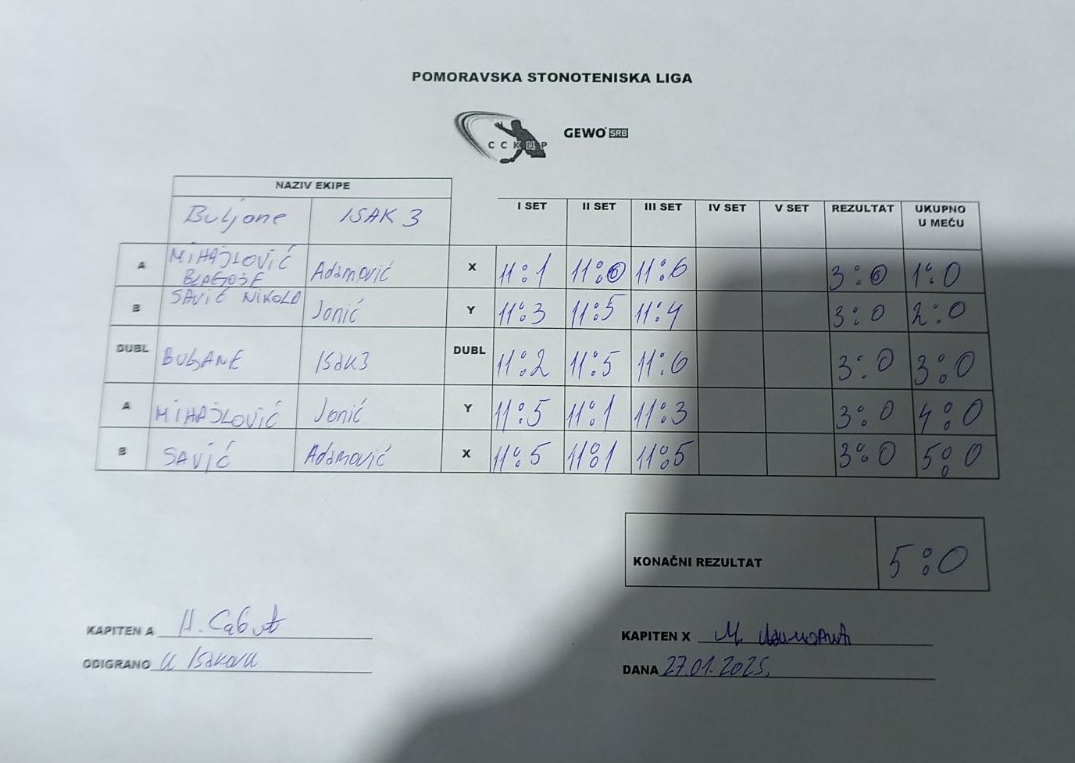 POMORAVSKA STONOTENISKA LIGA
С С К Ц Р GEWO SRB
NAZIV EKIPE
Buljane ISAK 3 I SET II SET III SET IV SET V SET REZULTAT UKUPNO U MEČU
A MIHAJLOVIĆ BLAGOJE Adamović X 11:1 11:0 11:6 3:0 1:0
B SAVIĆ NIKOLA Jonić Y 11:3 11:5 11:4 3:0 2:0
DUBL BULJANE ISAK3 DUBL 11:2 11:5 11:6 3:0 3:0
A MIHAJLOVIĆ Jonić Y 11:5 11:1 11:3 3:0 4:0
B SAVIĆ Adamović X 11:5 11:1 11:5 3:0 5:0
KONAČNI REZULTAT 5:0
KAPITEN A KAPITEN X
ODIGRANO U Isakovu DANA 27.01.2025.